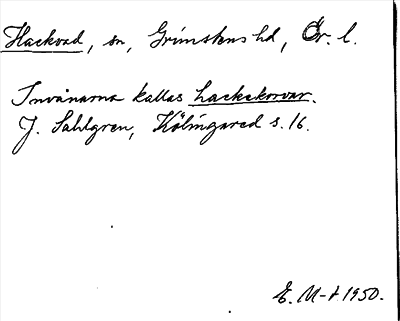 Hackvad, sn, Grimstens hd, Ör. l.
Invånarna kallas hackekorvar.
J. Sahlgren, Kölingared s. 16.
E. M-t 1950.